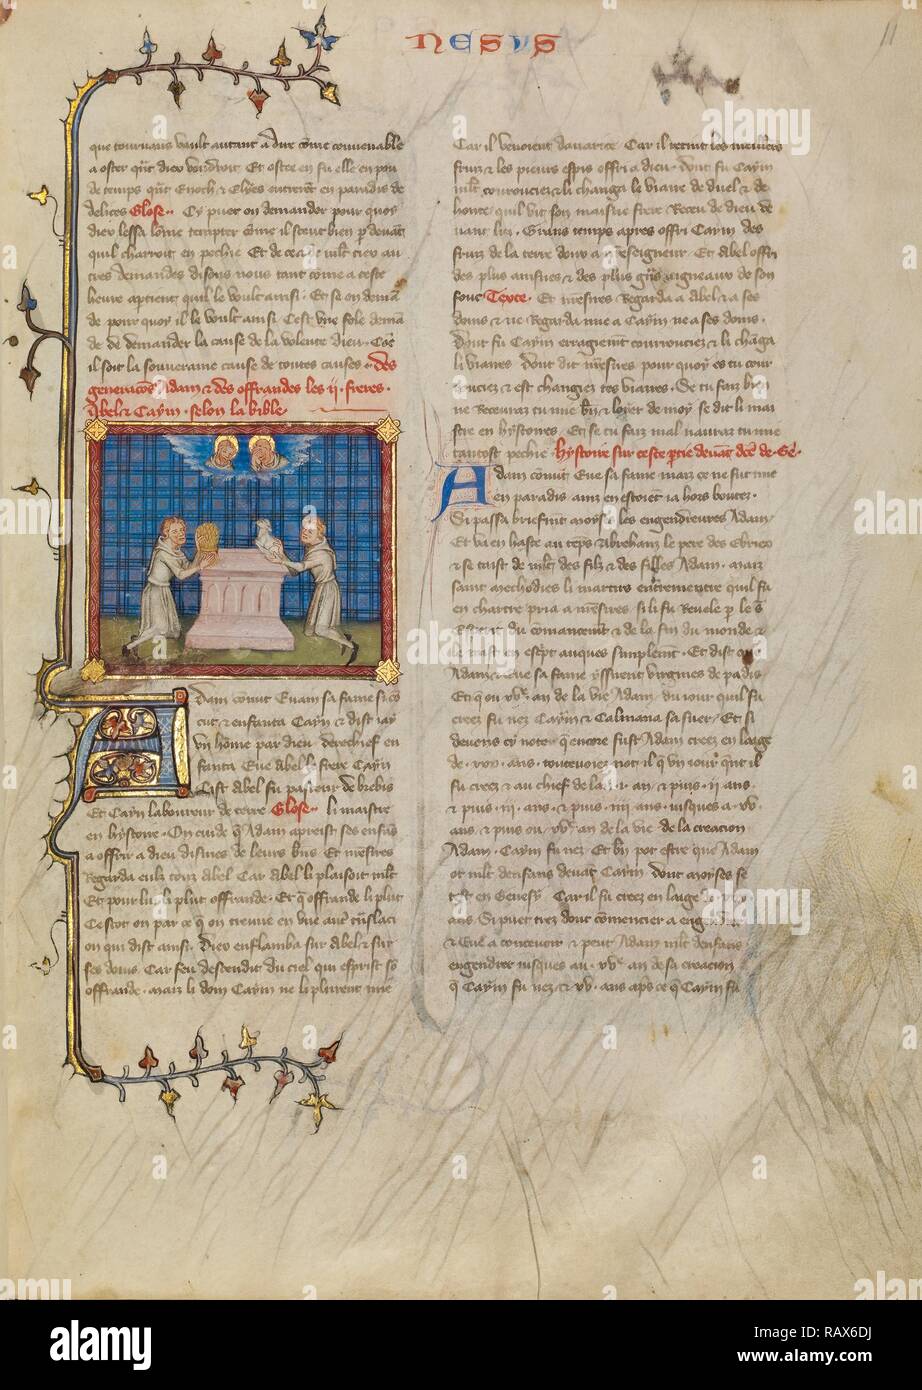 NESUS
11
que tournans vault autant a dire come convenable
a oster qnt dieu vordroit Et ostee en fu elle en pou
de temps qnt Enoch & Elyes entrerent en paradis de
delices Glose Cy puet on demander pour quoy
dieu lessa lome tempter come il sceut bien devant
quil charroit en pechie Et de ce
tres demandes disons nous tant come a ceste
heure aptient quil le voult ainsi Et se on demā
de pour quoy il le voult ainsi Cest vne fole demā
de de demander la cause de la volente dieu
il soit la souveraine cause de toutes causes des
generacōs Adam & des offrandes les ii freres
Abel & Caym selon la bible
Adam conut Evam sa fame si cō
cut & enfanta Caym & dist iay
vn home par dieu derechief en
fanta Eve abel le frere Caym
Cist abel fu pasteur de brebis
Et Caym laboureur de terre Glose li maistre
en hystoire On cuide q Adam aprist ses enfans
a offrir a dieu dismes de leurs bns Et
Regarda eulz touz abel Car abel li plaisoit mlt
Et pour luy li plut offrande Et offrande li plut
Cestot on par ce q on treuve en vne autre translaci
on qui dist ainsi Dieu enflamba sur abel & sur
ses dons Car feu descendit du ciel qui esprist sō
offrande mais li don Caym ne li plurent mie
Car il venoient davarice Car il retint les meilleurs
fruiz & les pieurs espis offri a dieu dont fu Caym
mlt courrouciez & li changa la viaire de duel & de
honte quil vit son maisne frere Receu de dieu de
vant luy Grans temps apres offri Caym des
fruiz de la terre dons a nreseigneur Et abel offri
des plus ainsnes & des plus gras aigneaux de son
fouc Texte Et nresires Regarda a abel & a ses
dons & ne Regarda mie a Caym ne a ses dons
Dont fu Caym erragieument courrouciez & li changa
li viaires dont dit nresires pour quoy es tu cour
rouciez & est changiez tes viaires Se tu faiz bien
ne Recevraz tu mie bn & loyer de moy se dit li mai
stre en hystoires Et se tu faiz mal nauraz tu mie
tantost pechie hystoire sur ceste ptie devant de Ge
Adam conut Eve sa fame mais ce ne fut mie
en paradis ainz en estoient ia hors boutez
Si passa briefmt moyses les engendreures Adam
Et va en haste au teps abreham le pere des Ebrieux
& se taist de mlt des filz & des filles Adam mais
saint methodies li martirs quil fu
en chartre pria a nresires si li fu Revele p le st
Esperit du comancemt & de la fin du monde &
le mist en escpt auques simplemt Et dist que
Adam & Eve sa fame yssirent virgines de padis
Et q ou xve an de la vie Adam du iour quil fu
creez fu nez Caym & Calmana sa suer Et si
devons cy noter q encore fust Adam creez en laage
de xxx ans toutevoies not il q vn iour qnt il
fu creez & au chief de lan i an & puis ii ans
& puis iii ans & puis iiii ans iusques a xv
ans & puis ou xve an de la vie de la creacion
Adam Caym fu nez Et bn pot estre que Adam
ot mlt denfans devant Caym dont moyses se
test en Genesy Car il fu creez en laage de xxx
ans Si puet trez donc comencier a engendrer
& Eve a concevoir & peut Adam mlt denfans
engendrer iusques au xve an de sa creacion
q Caym fu nez & xv ans aps ce q Caym fu
alamy
Image ID: RAX6DJ
www.alamy.com